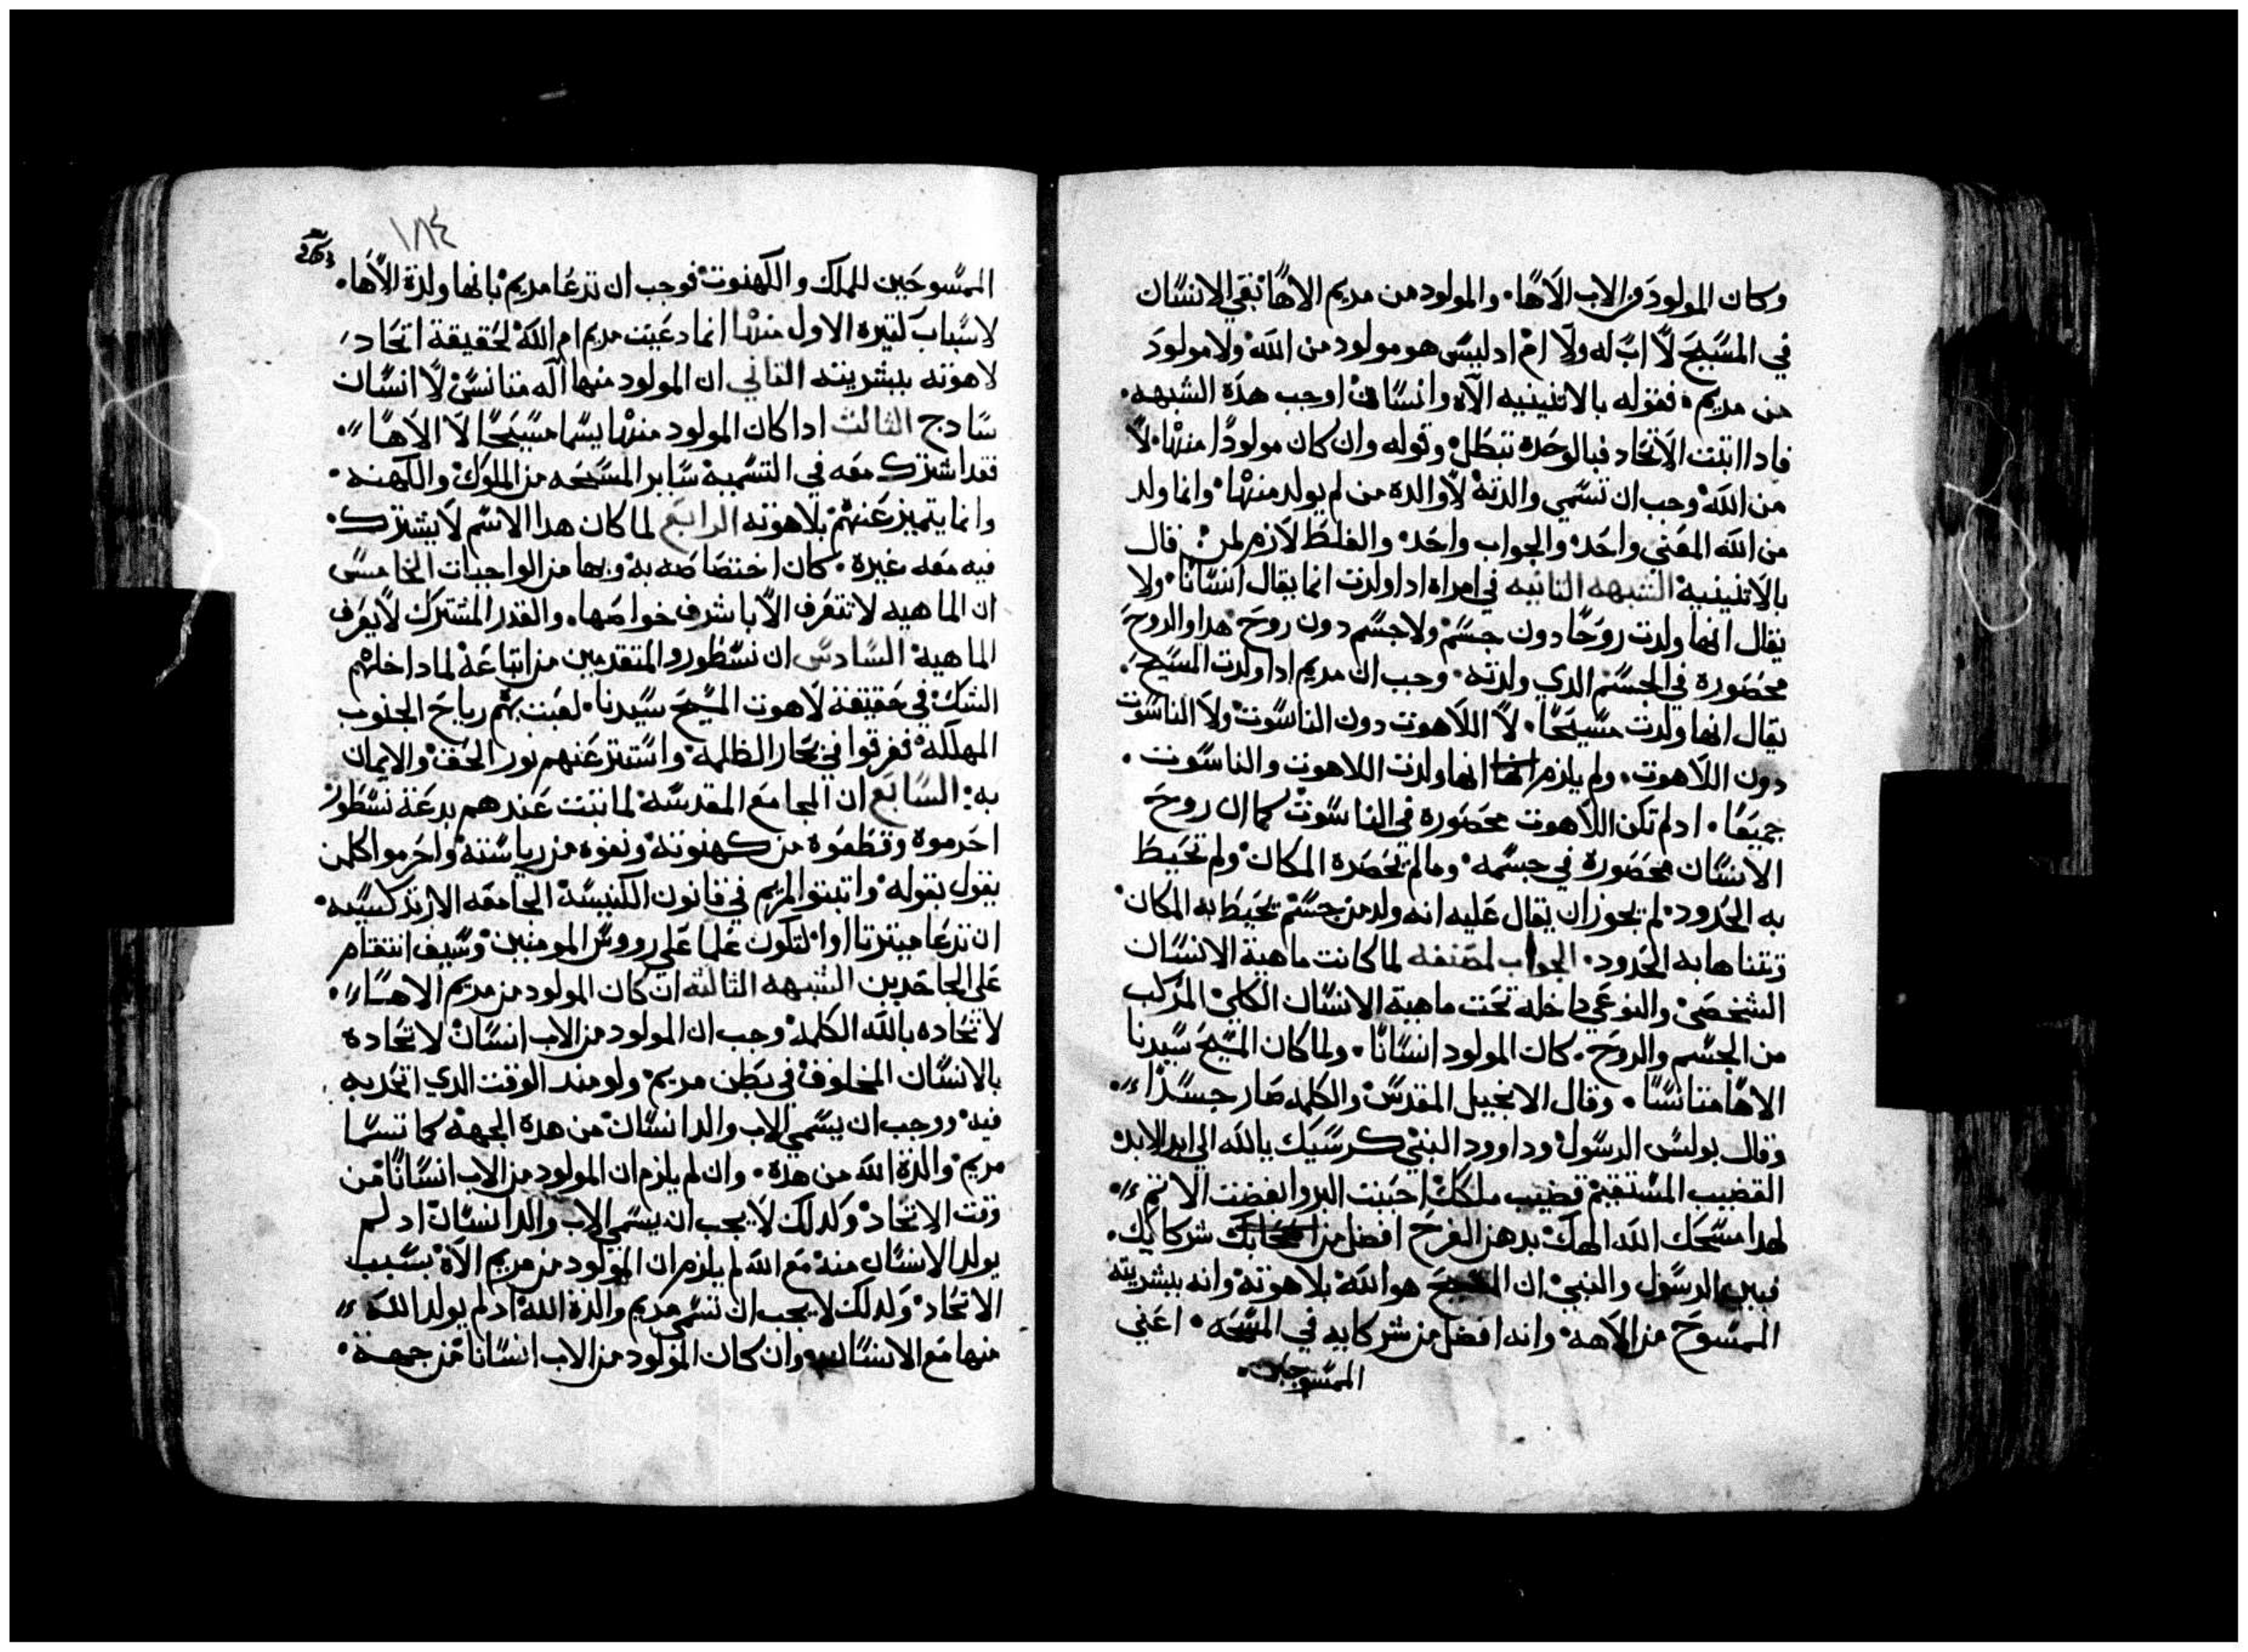 وكان المولود من الاب الاها. والمولود من مريم الاها بقي الانسان
في المسيح لا اب له ولا ام اد ليس هو مولود من الله ولا مولود
من مريم. فقوله بالاتنينيه الاه وانسان اوجب هذه الشبهه.
فادا اتبت الاتحاد فبالوحده تبطل وقوله وان كان مولودا منها لا
من الله وجب ان تسمي والدته لا والدة من لم يولد منها وانما ولد
من الله المعني واحد والجواب واحد والغلط لازم لمن قال
بالاتنينية الشبهه التانيه في امراه ادا ولدت انما يقال انسانا. ولا
يقال انها ولدت روحا دون جسم ولا جسم دون روح هدا والروح
محصورة في الجسم الدي ولدته. وجب ان مريم ادا ولدت المسيح.
يقال انها ولدت مسيحا. لا اللاهوت دون الناسوت ولا الناسوت
دون اللاهوت. ولم يلزم انها ولدت اللاهوت والناسوت.
جميعا. اد لم تكن اللاهوت محصورة في الناسوت كما ان روح
الانسان محصورة في جسمه. وما لم تحصره المكان ولم تحيط
به الحدود. لم يجوز ان يقال عليه انه ولد من جسم تحيط به المكان
وتتناها به الحدود. الجواب لمصنفه لما كانت ماهية الانسان
الشخصي والنوعي داخله تحت ماهية الانسان الكلي المركب
من الجسم والروح. كان المولود انسانا. ولما كان المسيح سيدنا
الاها متانسا. وقال الانجيل المقدس والكلمه صار جسدا
وقال بولس الرسول وداوود النبي كرسيك يالله الي ابد الابد
القضيب المستقيم قضيب ملكك احببت البر وابغضت الاتم
لهدا مسحك الله الهك بدهن الفرح افضل من شركايك.
فبين الرسول والنبي ان المسيح هو الله بلاهوته وانه ببشريته
الممسوح من الاهه وانه افضل من شركايه في المسحه. اعني
الممسوحين
١٨٤
الممسوحين للملك والكهنوت فوجب ان تدعا مريم بانها ولدة الاها.
لاسباب كتيره الاول منها انما دعيت مريم ام الله لحقيقة اتحاد
لاهوته ببشريته التاني ان المولود منها اله متانس لا انسان
سادج التالت ادا كان المولود منها يسما مسيحا لا الاها
فقد اشترك معه في التسمية ساير المسحه من الملوك والكهنه.
وانما يتميز عنهم بلاهوته الرابع لما كان هدا الاسم لا يشترك.
فيه معه غيره. كان اختصاصه به وبها من الواجبات الخامس
ان الماهيه لا تتعرف الا باشرف خواصها. والقدر المشترك لا يعرف
الماهية السادس ان نسطور والمتقدمين من اتباعه لما داخلهم
الشك في حقيقة لاهوت المسيح سيدنا. لعبت بهم رياح الجنوب
المهلكه فغرقوا في بحار الظلمه واستتر عنهم نور الحق والايمان
به. السابع ان المجامع المقدسه لما تبتت عندهم بدعة نسطور
احرموه وقطعوه من كهنوته ونفوه من رياسته واحرموا كلمن
يقول بقوله واتبتوا لمريم في قانون الكنيسه الجامعه الارتدكسيه
ان تدعا لتكون علما علي رووس المومنين وسيف انتقام
علي الجاحدين الشبهه التالته ان كان المولود من مريم الاها
لاتحاده بالله الكلمه وجب ان المولود من الاب انسان لاتحاده
بالانسان المخلوق في بطن مريم. ولو مند الوقت الدي اتحد به
فيه. ووجب ان يسمي الاب والد انسان من هده الجهة كما تسما
مريم والدة الله من هده. وان لم يلزم ان المولود من الاب انسانا من
وقت الاتحاد وكدلك لا يجب ان يسمي الاب والد انسان اد لم
يولد الانسان منه مع الله لم يلزم ان المولود من مريم الاه بسبب
الاتحاد وكدلك لا يجب ان تسمي مريم والدة الله اد لم يولد الله
منها مع الانسان وان كان المولود من الاب انسانا من جهة